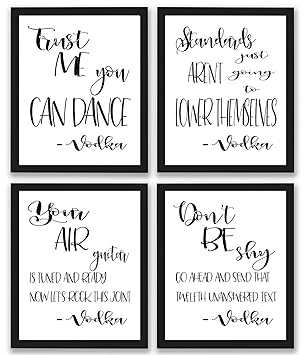 Trust
ME you
CAN DANCE
- Vodka
Standards
just
AREN'T going
to
LOWER THEMSELVES
- Vodka
Your
AIR
guitar
IS TUNED AND READY
NOW LET'S ROCK THIS JOINT
- Vodka
Don't
BE shy
GO AHEAD AND SEND THAT
TWELFTH UNANSWERED TEXT
- Vodka